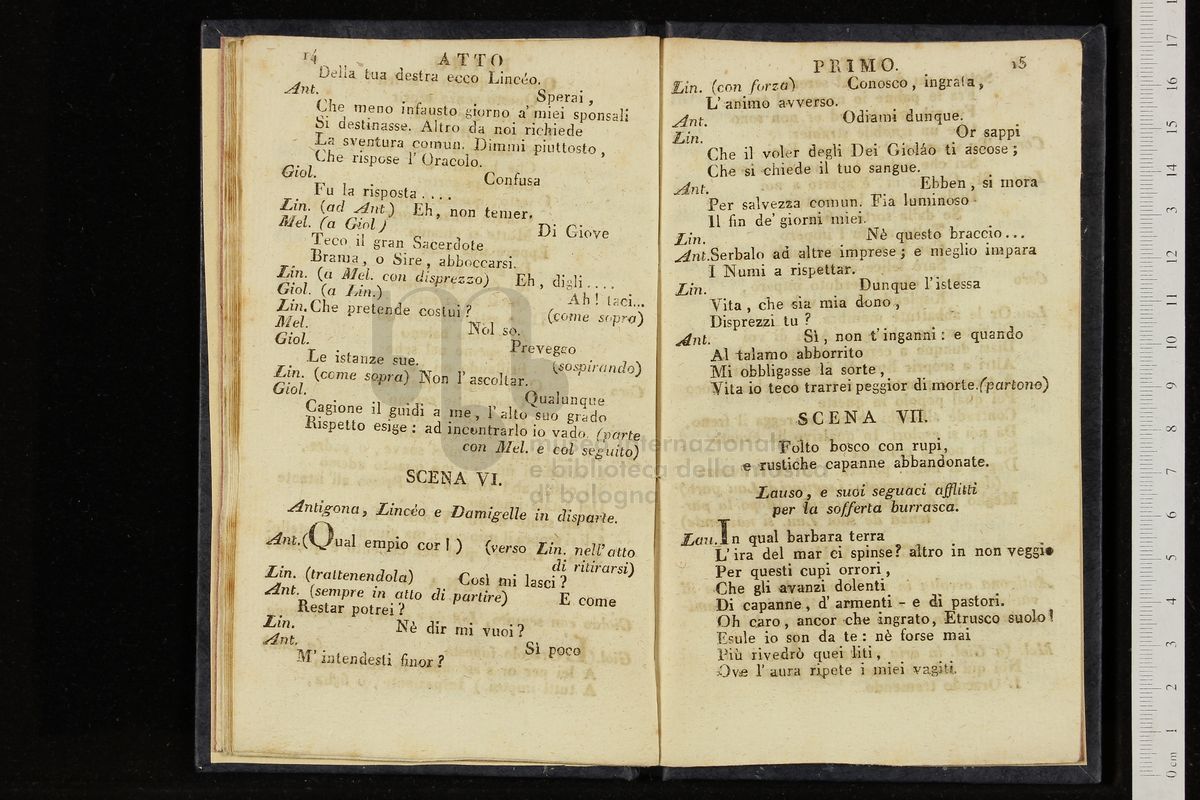 14 ATTO
Della tua destra ecco Lincéo.
Ant. Sperai,
Che meno infausto giorno a' miei sponsali
Si destinasse. Altro da noi richiede
La sventura comun. Dimmi piuttosto,
Che rispose l'Oracolo.
Giol. Confusa
Fu la risposta....
Lin. (ad Ant) Eh, non temer.
Mel. (a Giol) Di Giove
Teco il gran Sacerdote
Brama, o Sire, abboccarsi.
Lin. (a Mel. con disprezzo) Eh, digli....
Giol. (a Lin.) Ah! taci...
Lin. Che pretende costui? (come sopra)
Mel. Nol so.
Giol. Preveggo
Le istanze sue. (sospirando)
Lin. (come sopra) Non l'ascoltar.
Giol. Qualunque
Cagione il guidi a me, l'alto suo grado
Rispetto esige: ad incontrarlo io vado. (parte
con Mel. e col seguito)
SCENA VI.
Antigona, Lincéo e Damigelle in disparte.
Ant. (Qual empio cor!) (verso Lin. nell'atto
di ritirarsi)
Lin. (trattenendola) Così mi lasci?
Ant. (sempre in atto di partire) E come
Restar potrei?
Lin. Nè dir mi vuoi?
Ant. Sì poco
M'intendesti finor?
PRIMO. 15
Lin. (con forza) Conosco, ingrata,
L'animo avverso.
Ant. Odiami dunque.
Lin. Or sappi
Che il voler degli Dei Gioláo ti ascose;
Che si chiede il tuo sangue.
Ant. Ebben, si mora
Per salvezza comun. Fia luminoso
Il fin de' giorni miei.
Lin. Nè questo braccio...
Ant. Serbalo ad altre imprese; e meglio impara
I Numi a rispettar.
Lin. Dunque l'istessa
Vita, che sia mia dono,
Disprezzi tu?
Ant. Sì, non t'inganni: e quando
Al talamo abborrito
Mi obbligasse la sorte,
Vita io teco trarrei peggior di morte. (partono)
SCENA VII.
Folto bosco con rupi,
e rustiche capanne abbandonate.
Lauso, e suoi seguaci afflitti
per la sofferta burrasca.
Lau. In qual barbara terra
L'ira del mar ci spinse? altro in non veggio
Per questi cupi orrori,
Che gli avanzi dolenti
Di capanne, d'armenti - e di pastori.
Oh caro, ancor che ingrato, Etrusco suolo!
Esule io son da te: nè forse mai
Più rivedrò quei liti,
Ove l'aura ripete i miei vagiti.
museo internazionale
e biblioteca della musica
di bologna
0 cm 1 2 3 4 5 6 7 8 9 10 11 12 13 14 15 16 17